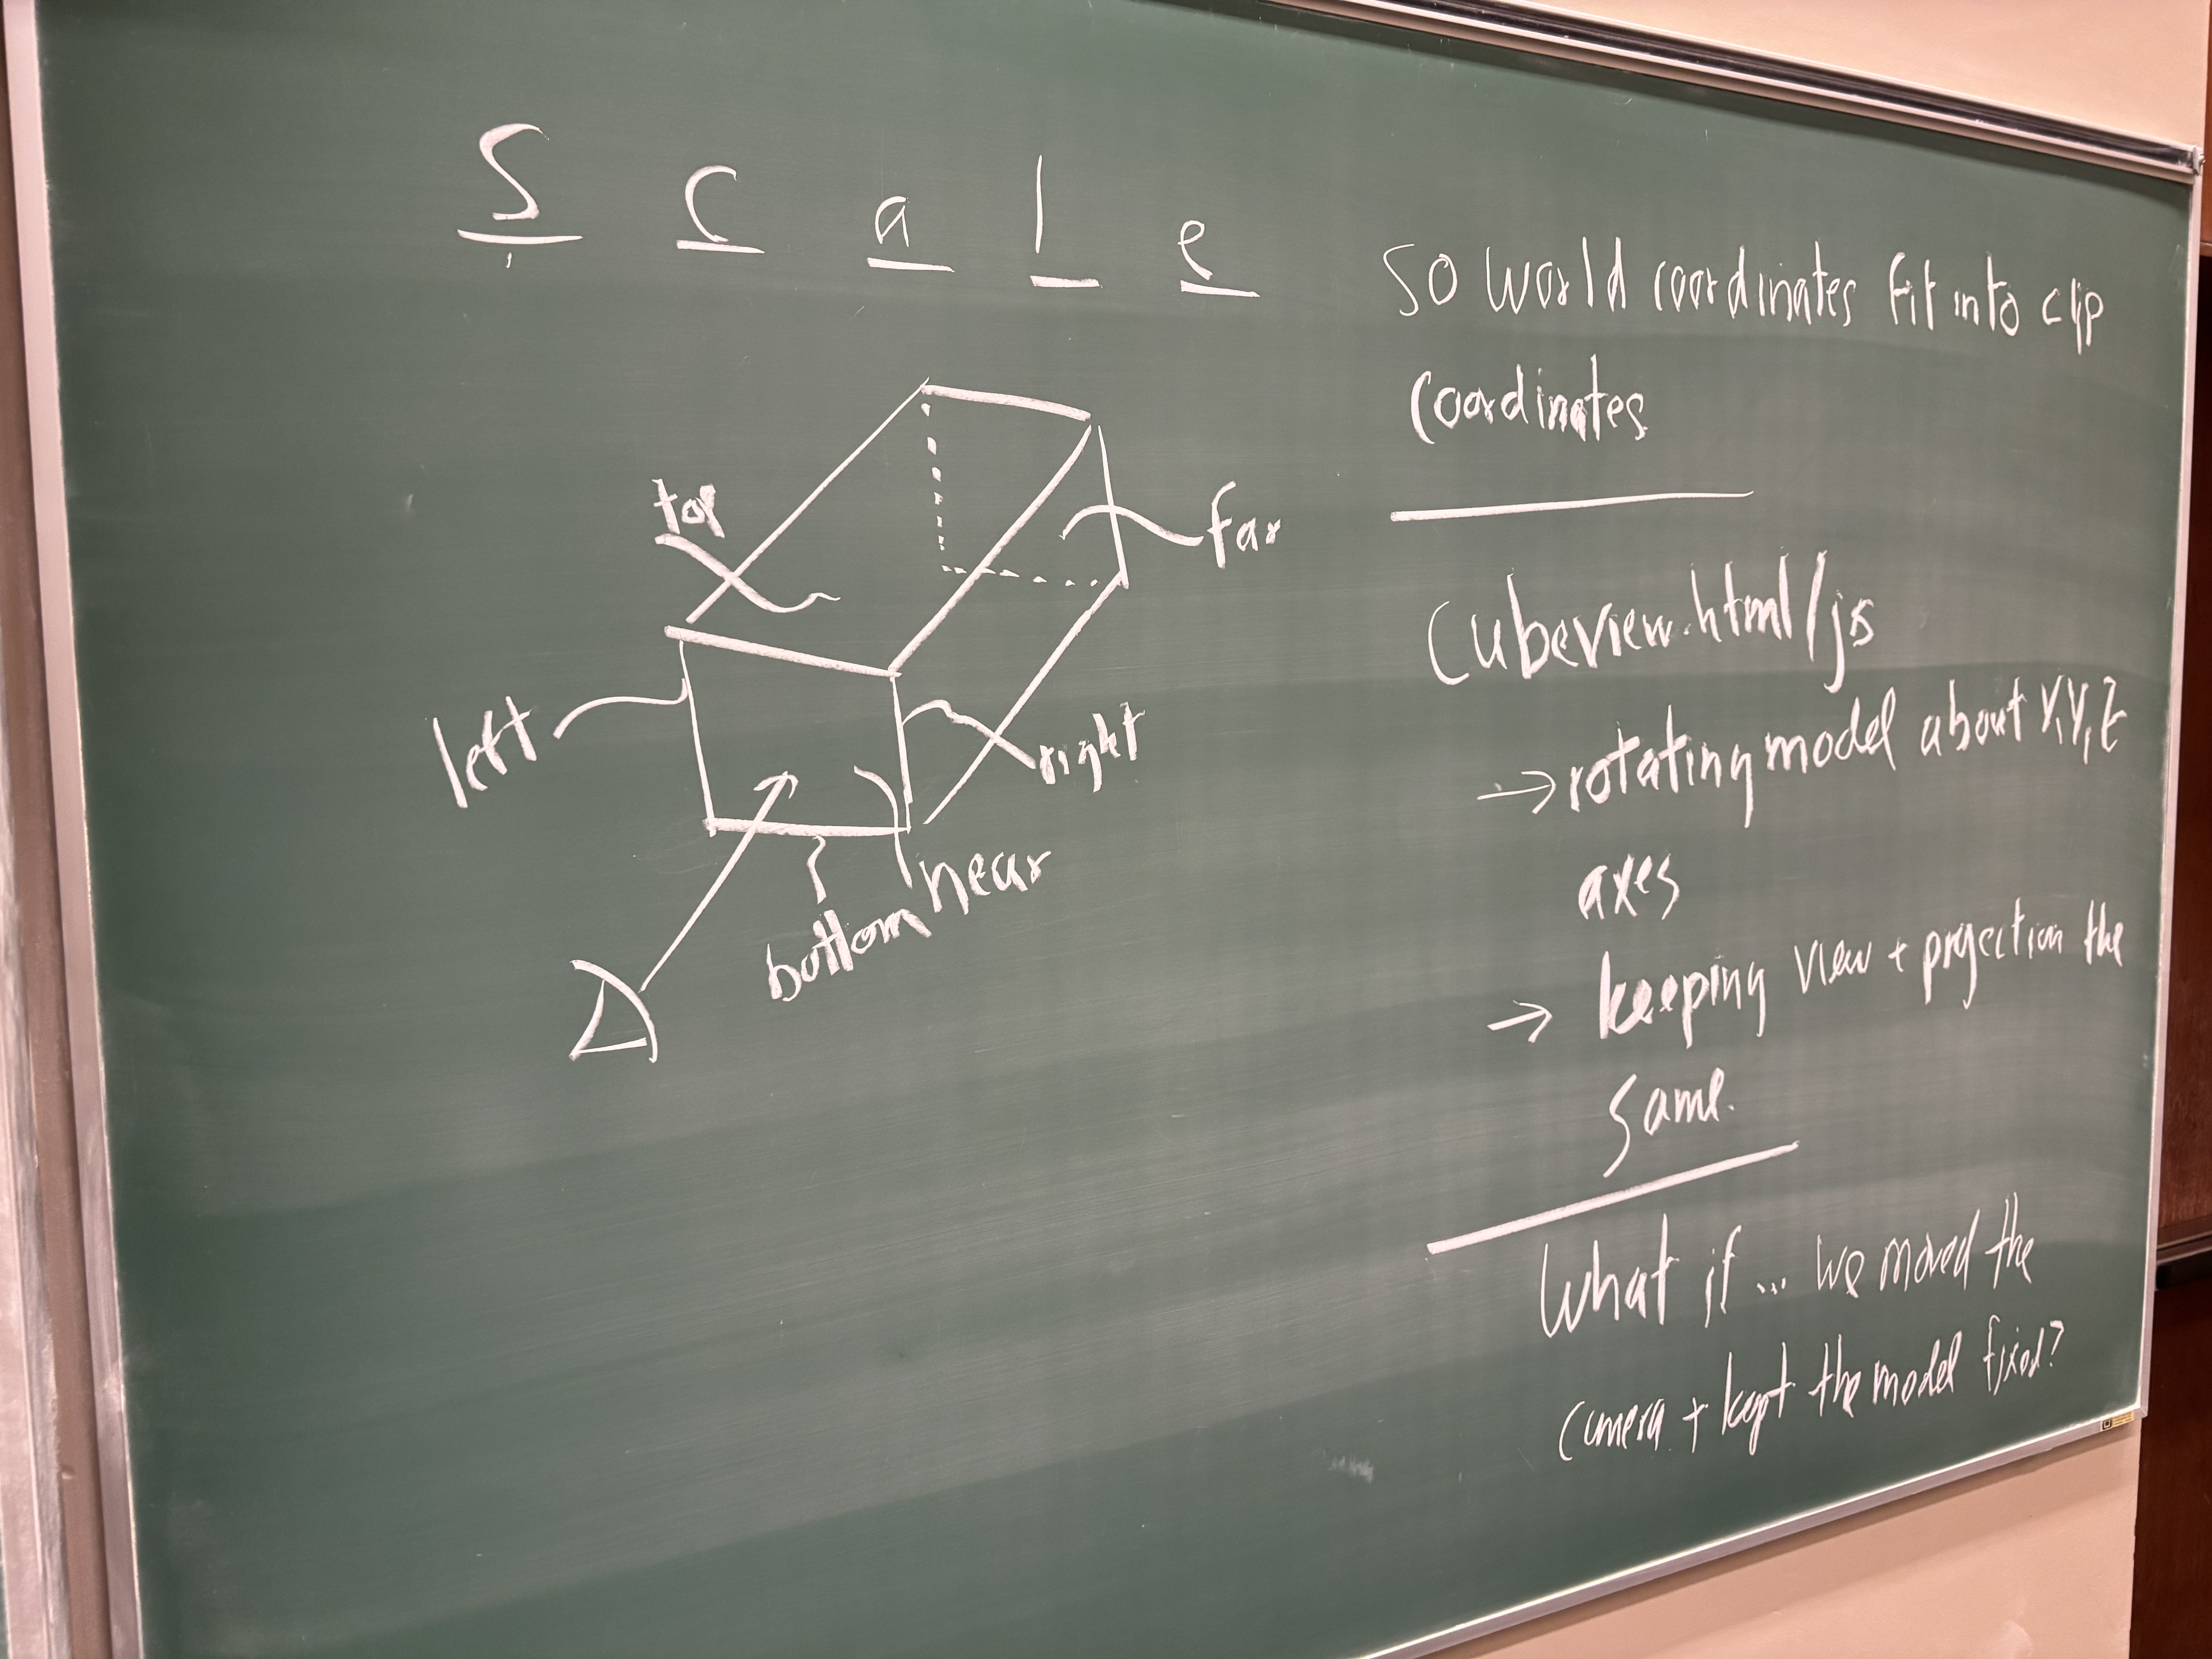 S c a l e
so world coordinates fit into clip
coordinates
top
far
left
right
near
bottom
Cubeview.html/js
→ rotating model about X,Y,Z
axes
→ keeping view + projection the
same.
What if ... we moved the
camera + kept the model fixed?